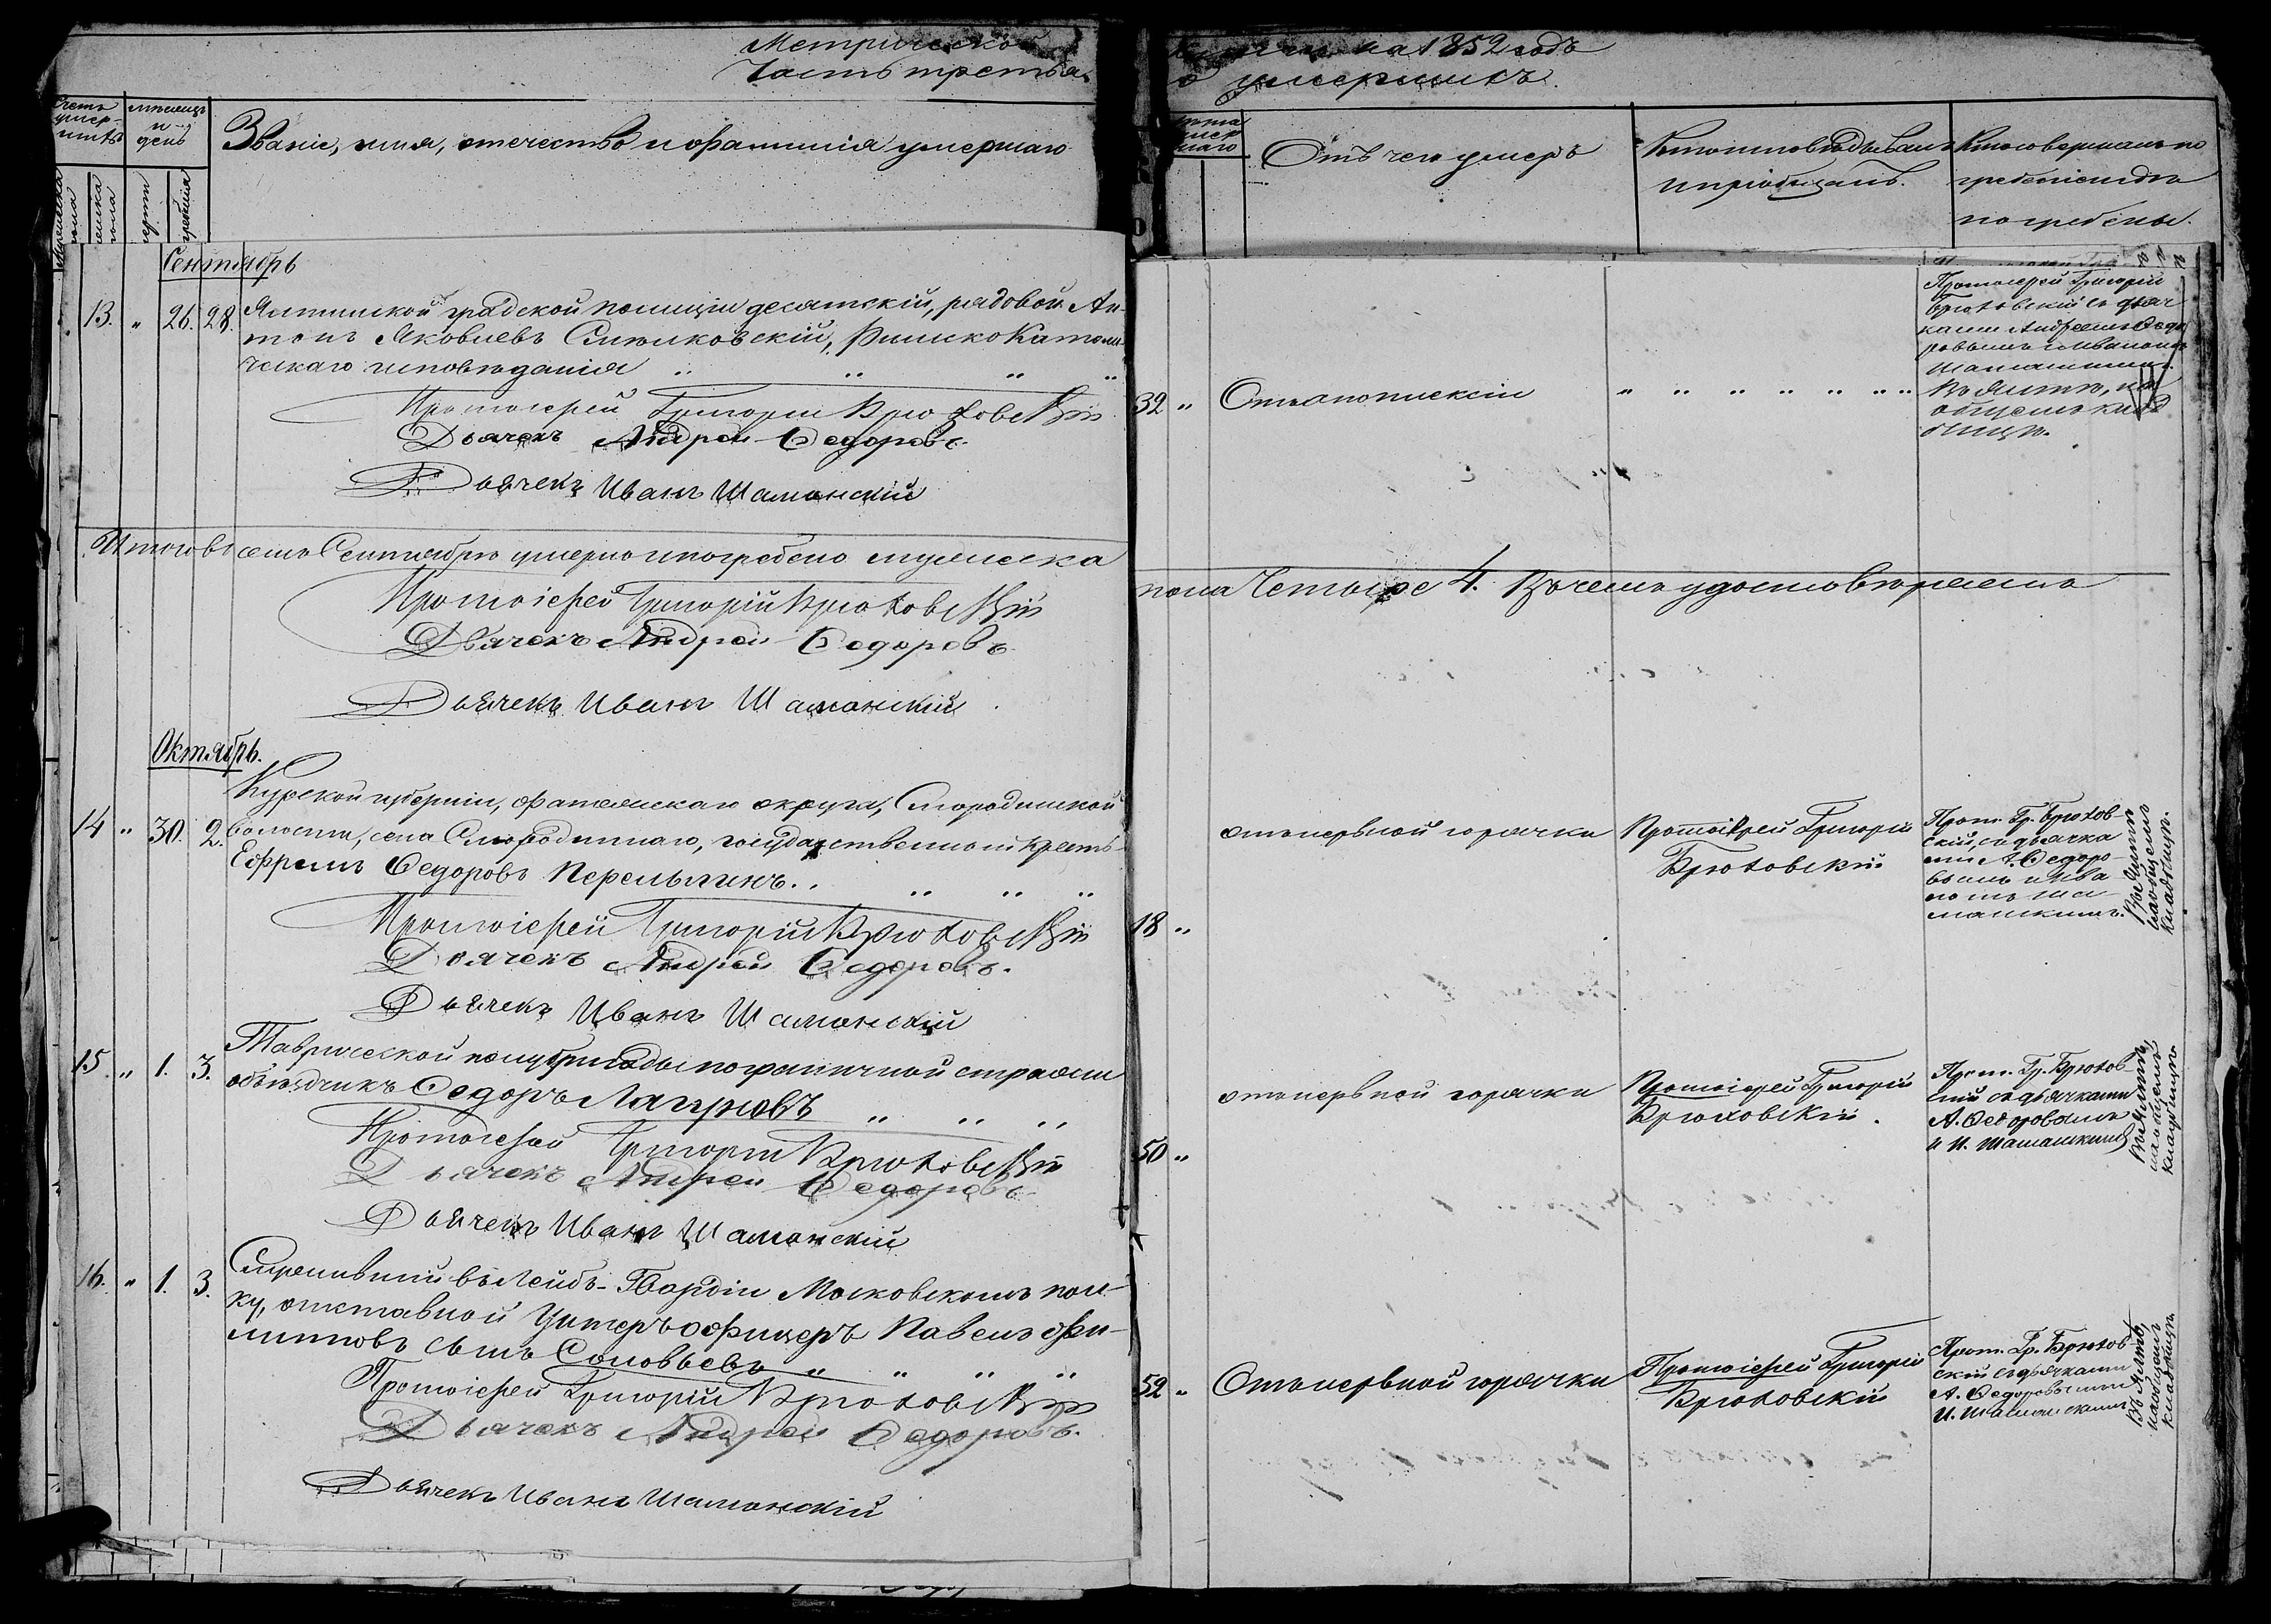 Метрической
Часть третья
книги на 1852 годъ
о умершихъ.
Счетъ
умер-
шихъ
Мѣсяцъ
и
день
Званіе, имя, отечество и фамилія умершаго
Отъ чего умеръ
Кто исповѣдывалъ
и пріобщалъ.
Кто совершалъ по
гребеніе и гдѣ
погребены.
Сентябрь
13. " 26. 28.
Ялтинской градской полиціи десятскій, рядовой Ан-
тонъ Яковлевъ, Римско Католи-
ческаго исповѣданія
Протоіерей Григорій Брюховскій
Дьячекъ Андрей Ѳедоровъ.
Дьячекъ Иванъ Шаманскій
32 "
Отъ апоплексіи
Протоіерей Григорій
Брюховскій съ дьяч
ками Андреемъ Ѳедо
ровымъ и Иваномъ
Въ Ялтѣ, на
общемъ клад
бищѣ.
Итого въ семъ Сентябрѣ умерло и погребено мужеска
Протоіерей Григорій Брюховскій
Дьячекъ Андрей Ѳедоровъ
Дьячекъ Иванъ Шаманскій
пола Четыре 4. Въ чемъ удостовѣряемъ
Октябрь.
14 " 30. 2.
Курской губерніи, Фатежскаго округа, Смородинской
волости, села Смородиннаго, государственный крестья
Ефремъ Ѳедоровъ Перелыгинъ.
Протоіерей Григорій Брюховскій
Дьячекъ Андрей Ѳедоровъ.
Дьячекъ Иванъ Шаманскій
18 "
отъ нервной горячки
Протоіерей Григорій
Брюховскій
Прот. Гр. Брюхов-
скій, съ дьячка
ми А. Ѳедоро-
вымъ и Ива
номъ Ша-
манскимъ.
Въ Ялтѣ
на общемъ
кладбищѣ.
15. " 1. 3.
Таврической полубригады пограничной стражи
объѣздчикъ Ѳедоръ
Протоіерей Григорій Брюховскій
Дьячекъ Андрей Ѳедоровъ
Дьячекъ Иванъ Шаманскій
50 "
отъ нервной горячки
Протоіерей Григорій
Брюховскій.
Прот. Гр. Брюхов
скій съ дьячками
А. Ѳедоровымъ
и И. Шаманскимъ
Въ Ялтѣ,
на общемъ
кладбищѣ.
16. " 1. 3.
Служившій въ Лейбъ-Гвардіи Московскомъ пол-
ку, отставной Унтеръ офицеръ Павелъ Фи-
липповъ сынъ Соловьевъ
Протоіерей Григорій Брюховскій
Дьячекъ Андрей Ѳедоровъ.
Дьячекъ Иванъ Шаманскій
52 "
Отъ нервной горячки
Протоіерей Григорій
Брюховскій
Прот. Гр. Брюхов
скій съ дьячками
А. Ѳедоровымъ и
И. Шаманскимъ
Въ Ялтѣ,
на общемъ
кладбищѣ